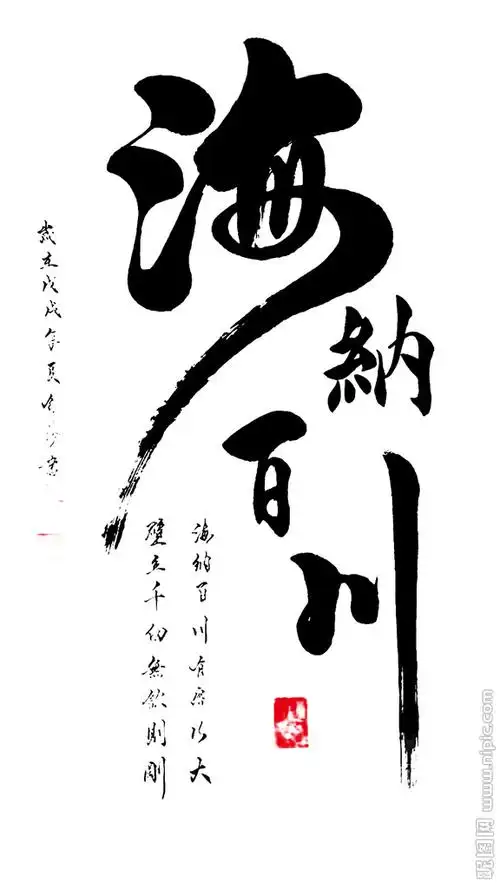 海
納
百
川
海納百川有容乃大
壁立千仞無欲則剛
歲在戊戌年夏
昵图网 www.nipic.com